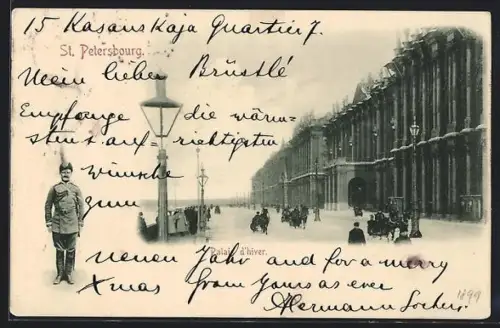 15 Kasanskaja Quartier 7.
St. Petersbourg.
Mein lieber Brüstlé
Empfange die wärm-
sten aufrichtigsten
Wünsche
zum
Palais d'hiver.
neuen Jahr and for a merry
Xmas from Yours as ever
Hermann
1899